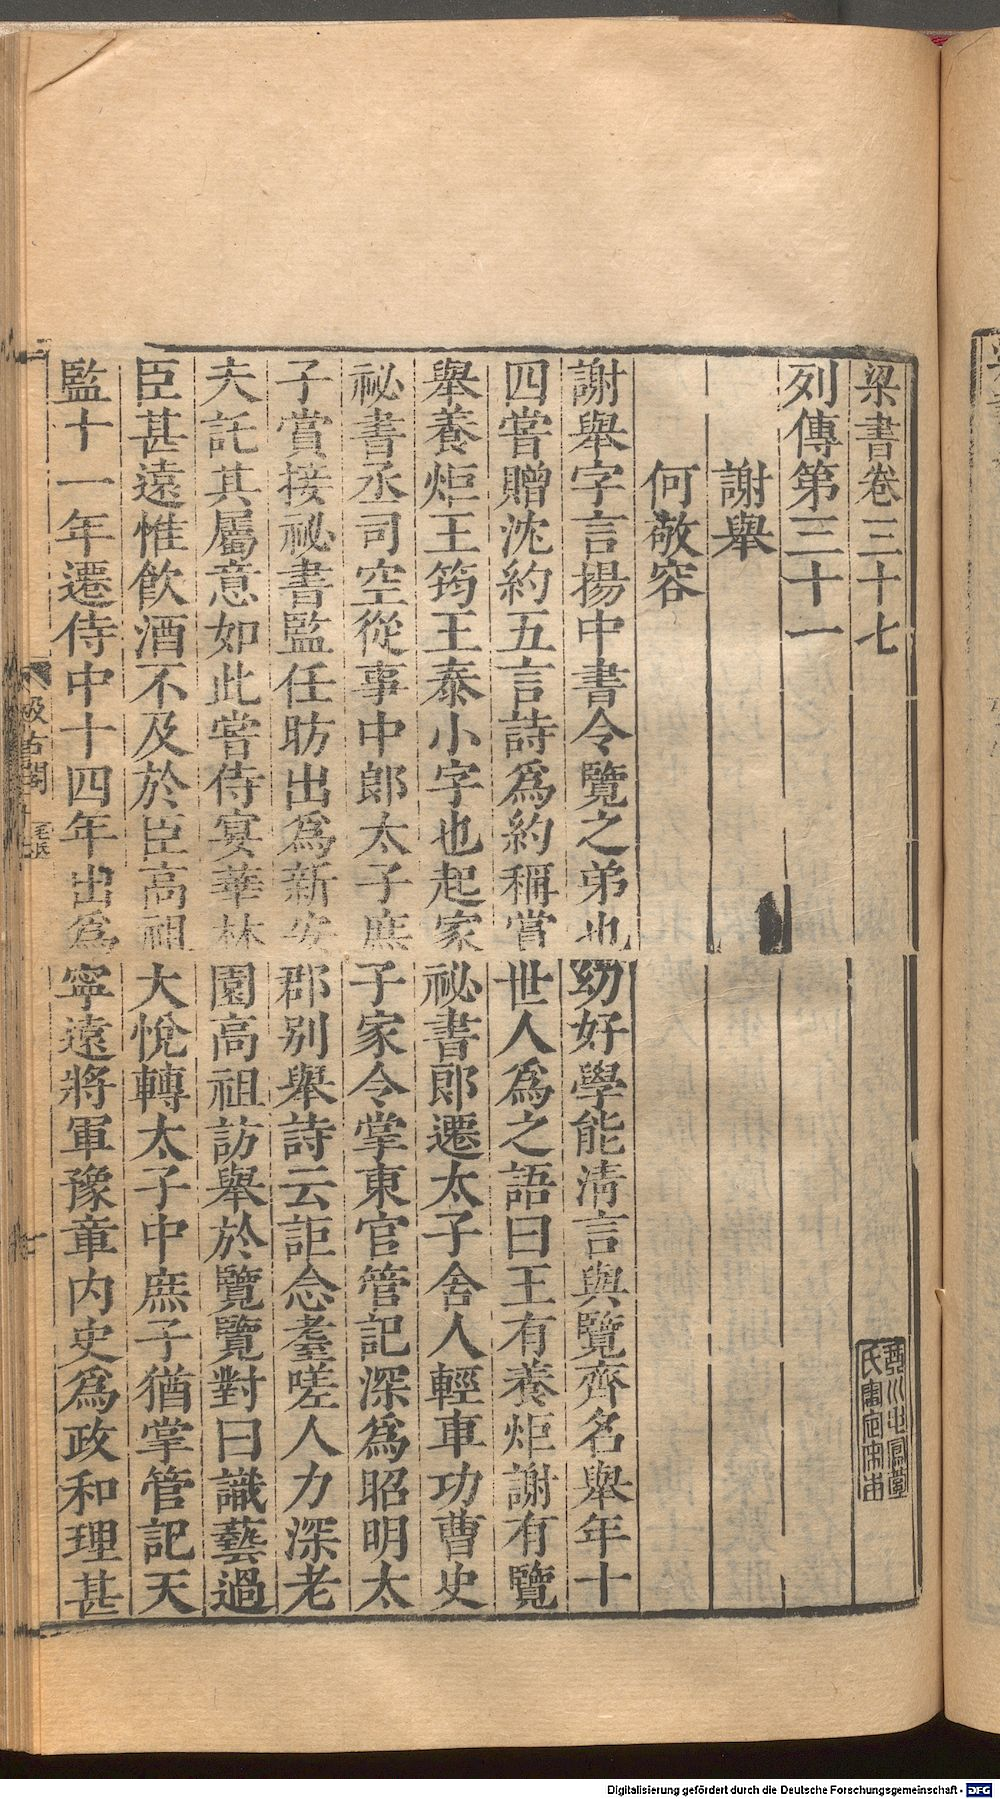 梁書卷三十七
列傳第三十一
謝舉
何敬容
謝舉字言揚中書令覽之弟也幼好學能清言與覽齊名舉年十
四嘗贈沈約五言詩爲約稱賞世人爲之語曰王有養炬謝有覽
舉養炬王筠王泰小字也起家祕書郎遷太子舍人輕車功曹史
祕書丞司空從事中郎太子庶子家令掌東宮管記深爲昭明太
子賞接祕書監任昉出爲新安郡別舉詩云詎念耋嗟人方深老
夫託其屬意如此嘗侍宴華林園高祖訪舉於覽覽對曰識藝過
臣甚遠惟飲酒不及於臣高祖大悅轉太子中庶子猶掌管記天
監十一年遷侍中十四年出爲寧遠將軍豫章內史爲政和理甚
汲古閣
毛氏
Digitalisierung gefördert durch die Deutsche Forschungsgemeinschaft - DFG